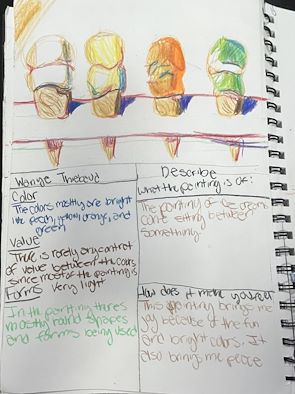 Wayne Thiebaud
Color
The colors mostly are bright
like peach, yellow, orange, and
green
Value
There is rarely any contrast
of value between the colors
since most of the painting is
very light
Forms
In the painting theres
mostly round shapes
and forms being used
Describe
What the painting is of:
The painting of ice cream
cone sitting between
something
How does it make you feel?
This painting brings me
joy because of the fun
and bright colors. It
also brings me peace